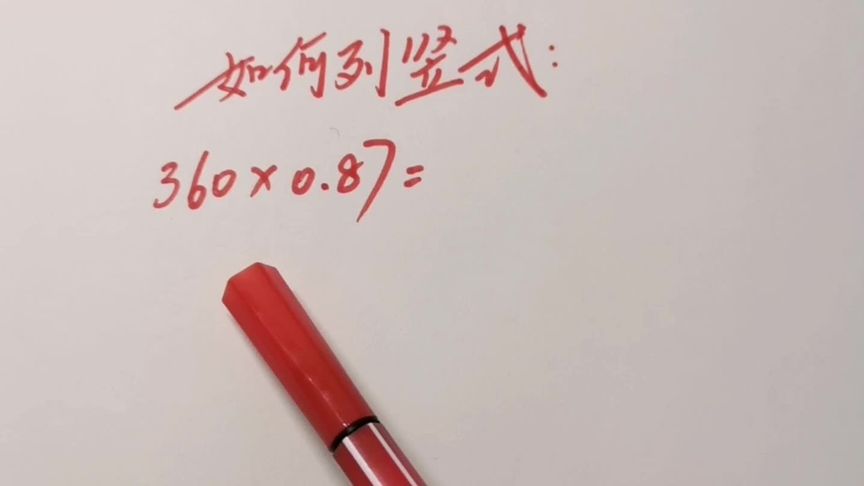 如何列竖式:
360×0.87=